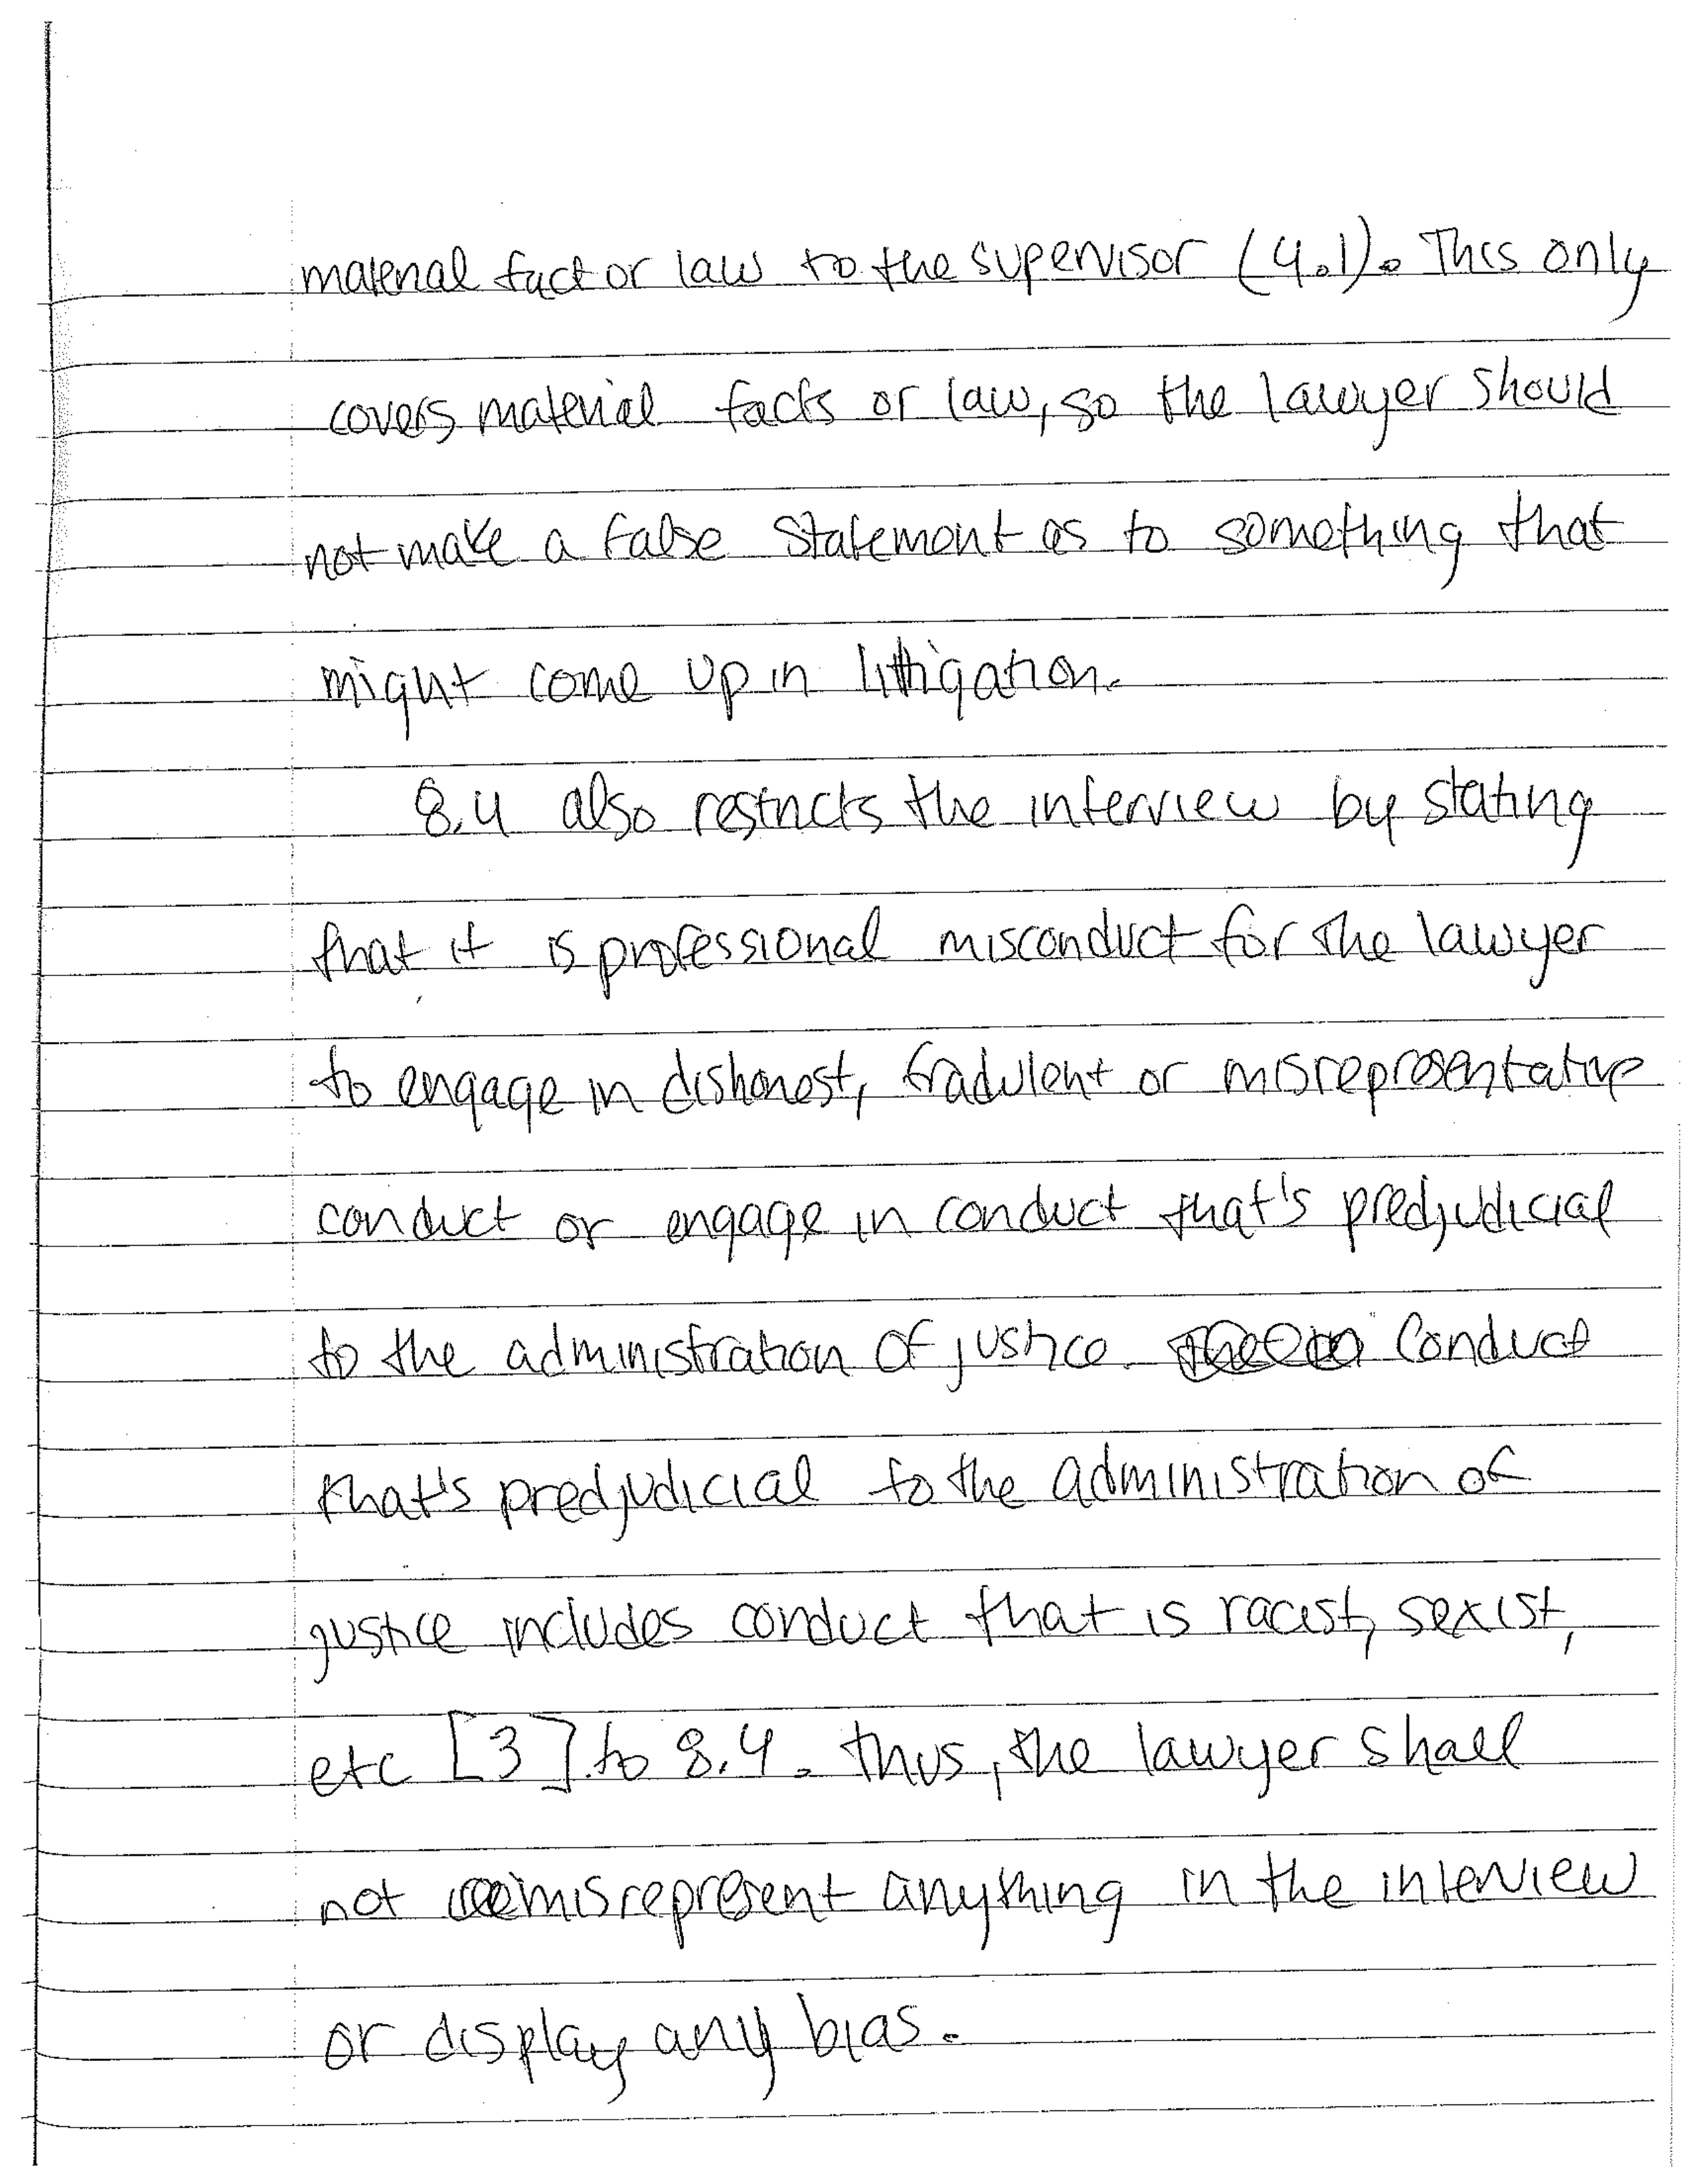 material fact or law to the supervisor (4.1). This only
covers material facts or law, so the lawyer should
not make a false statement as to something that
might come up in litigation.
8.4 also restricts the interview by stating
that it is professional misconduct for the lawyer
to engage in dishonest, fradulent or misrepresentative
conduct or engage in conduct that's predjudicial
to the administration of justice. Conduct
that's predjudicial to the administration of
justice includes conduct that is racist, sexist,
etc [3] to 8.4. Thus, the lawyer shall
not misrepresent anything in the interview
or display any bias.